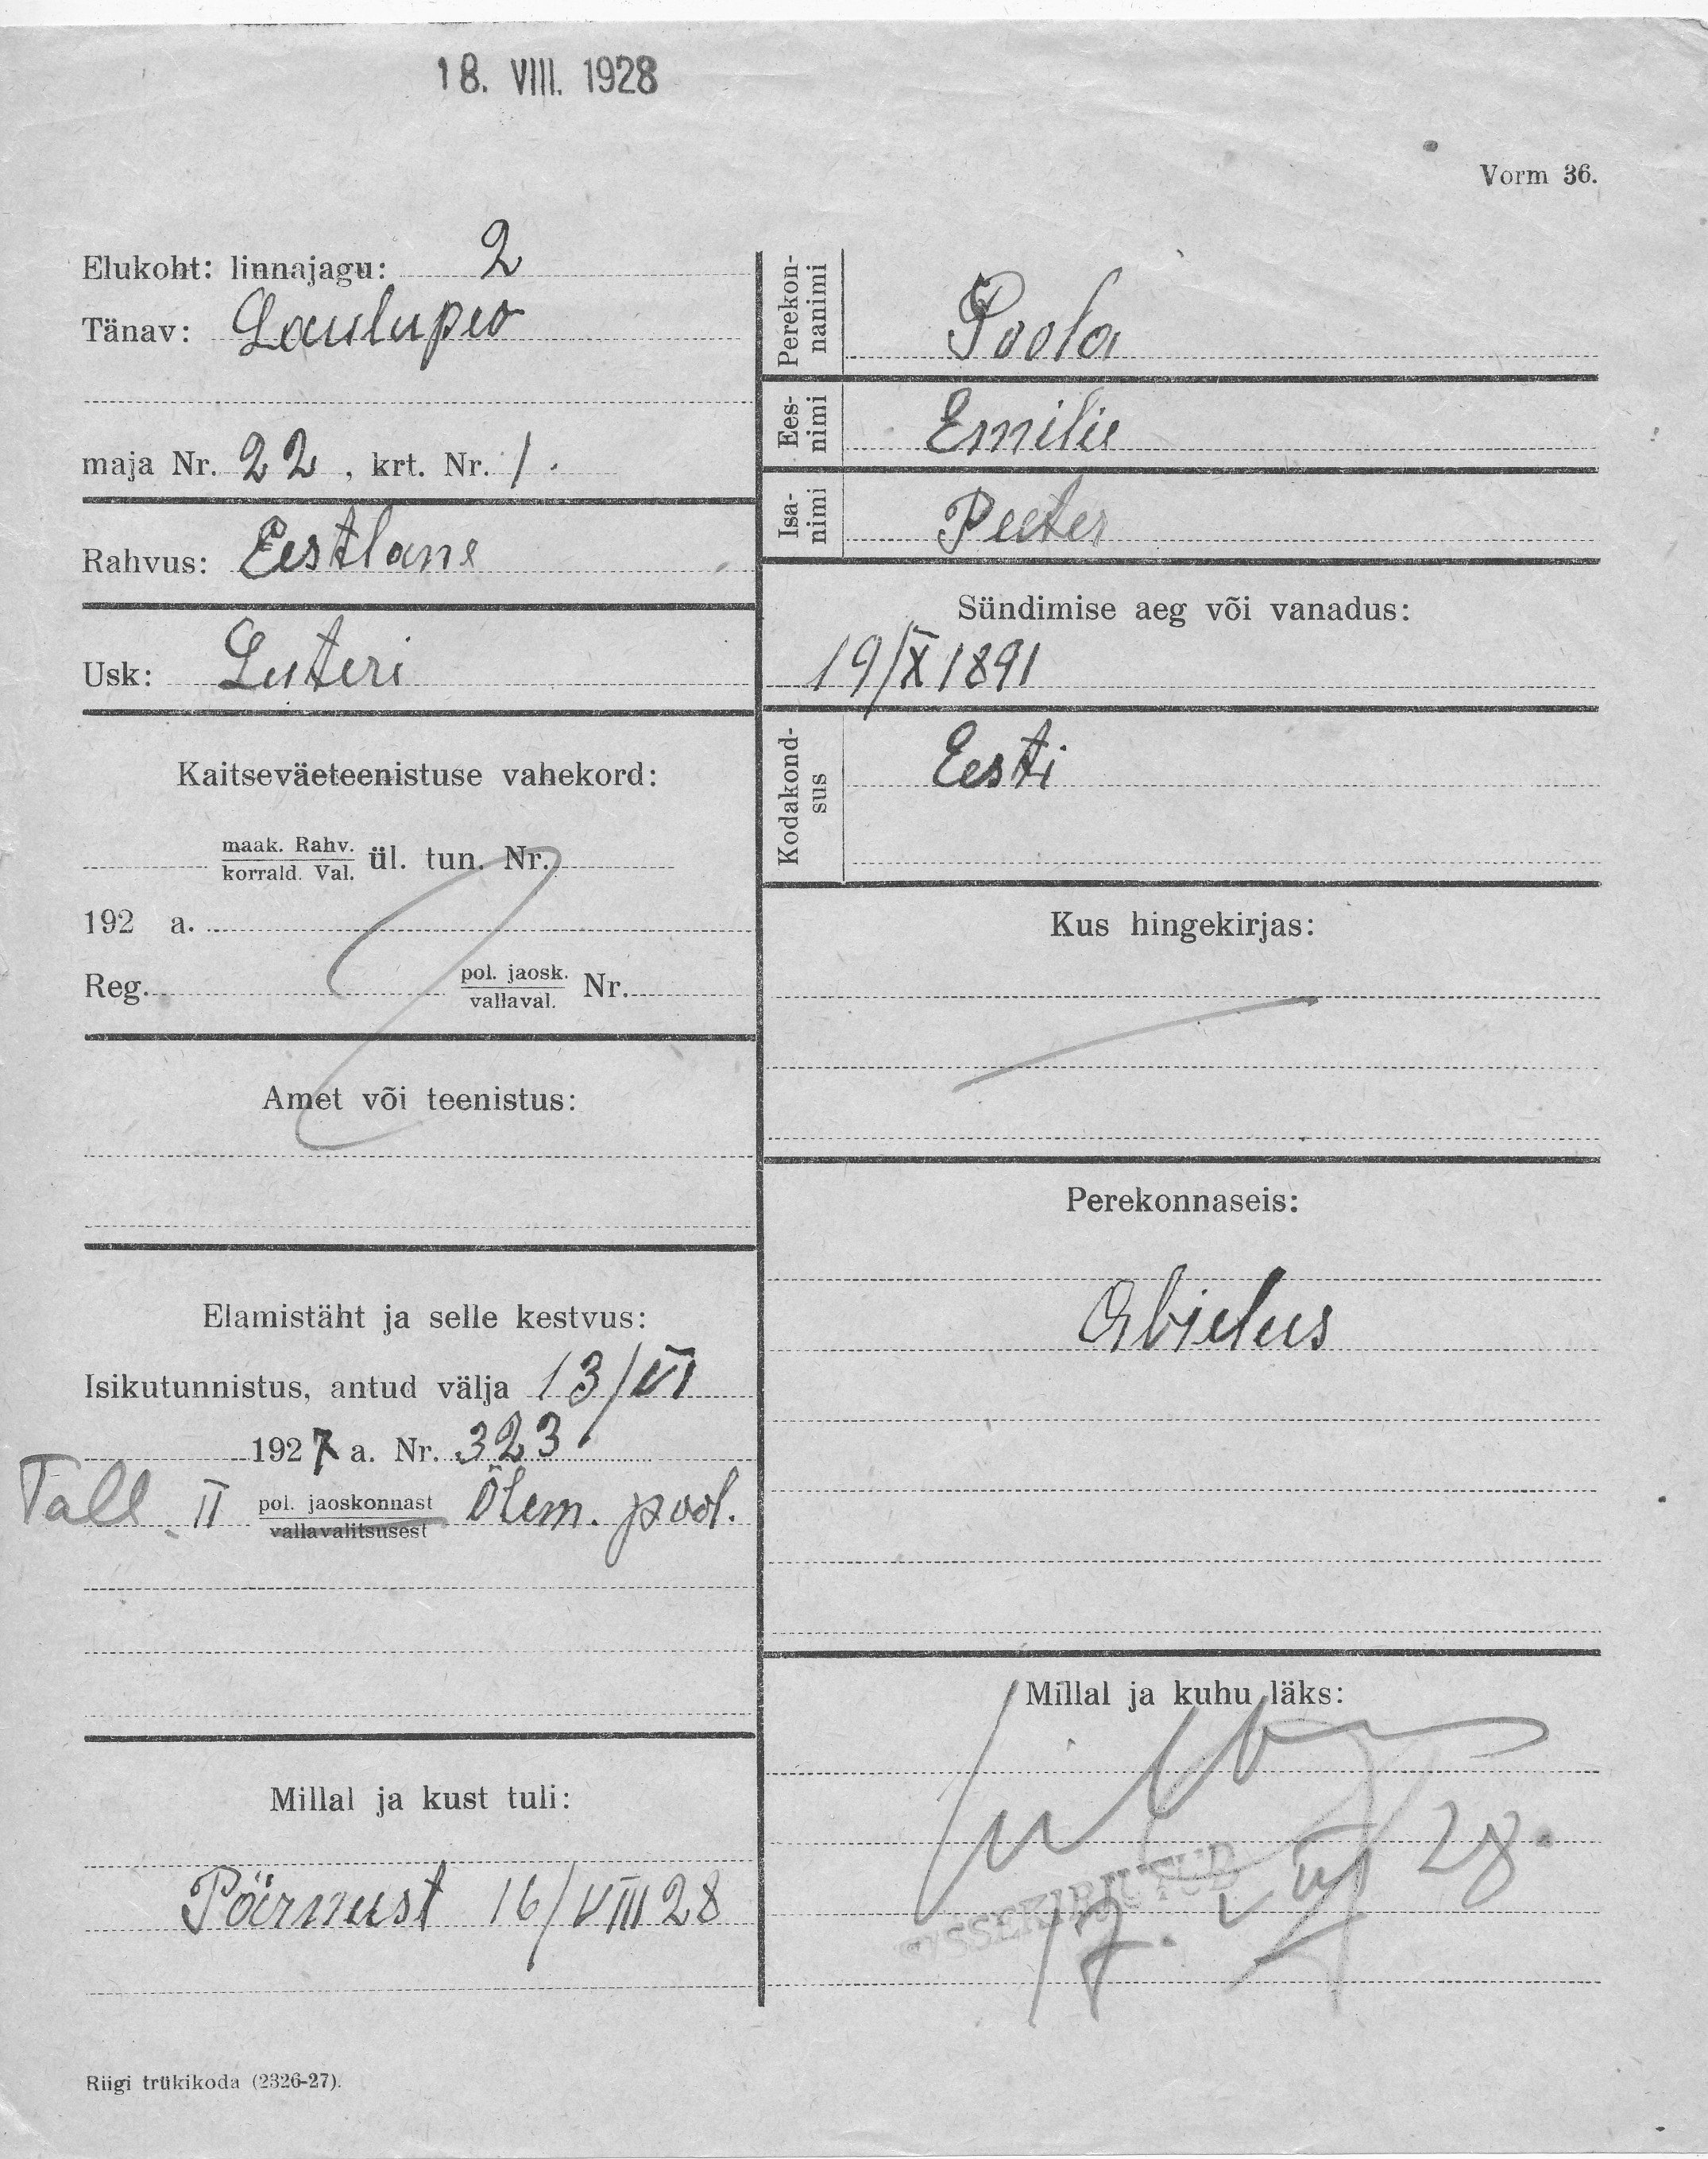 18. VIII. 1928
Vorm 36.
Elukoht: linnajagu: 2
Tänav: Laulupeo
maja Nr. 22, krt. Nr. 1.
Rahvus: Eestlane
Usk: Luteri
Kaitseväeteenistuse vahekord:
maak. Rahv.
korrald. Val.
ül. tun. Nr.
192 a.
Reg. pol. jaosk.
vallaval. Nr.
Amet või teenistus:
Elamistäht ja selle kestvus:
Isikutunnistus, antud välja 13/VI
1927 a. Nr. 323
Tall. II pol. jaoskonnast
vallavalitsusest
Ölem. pool.
Millal ja kust tuli:
Pärnust 16/VIII 28
Riigi trükikoda (2326-27).
Perekon-
nanimi
Poola
Ees-
nimi
Emilie
Isa-
nimi
Peeter
Sündimise aeg või vanadus:
19/X 1891
Kodakond-
sus
Eesti
Kus hingekirjas:
Perekonnaseis:
Abielus
Millal ja kuhu läks:
SISSEKIRJUTUD
17. VIII 28.